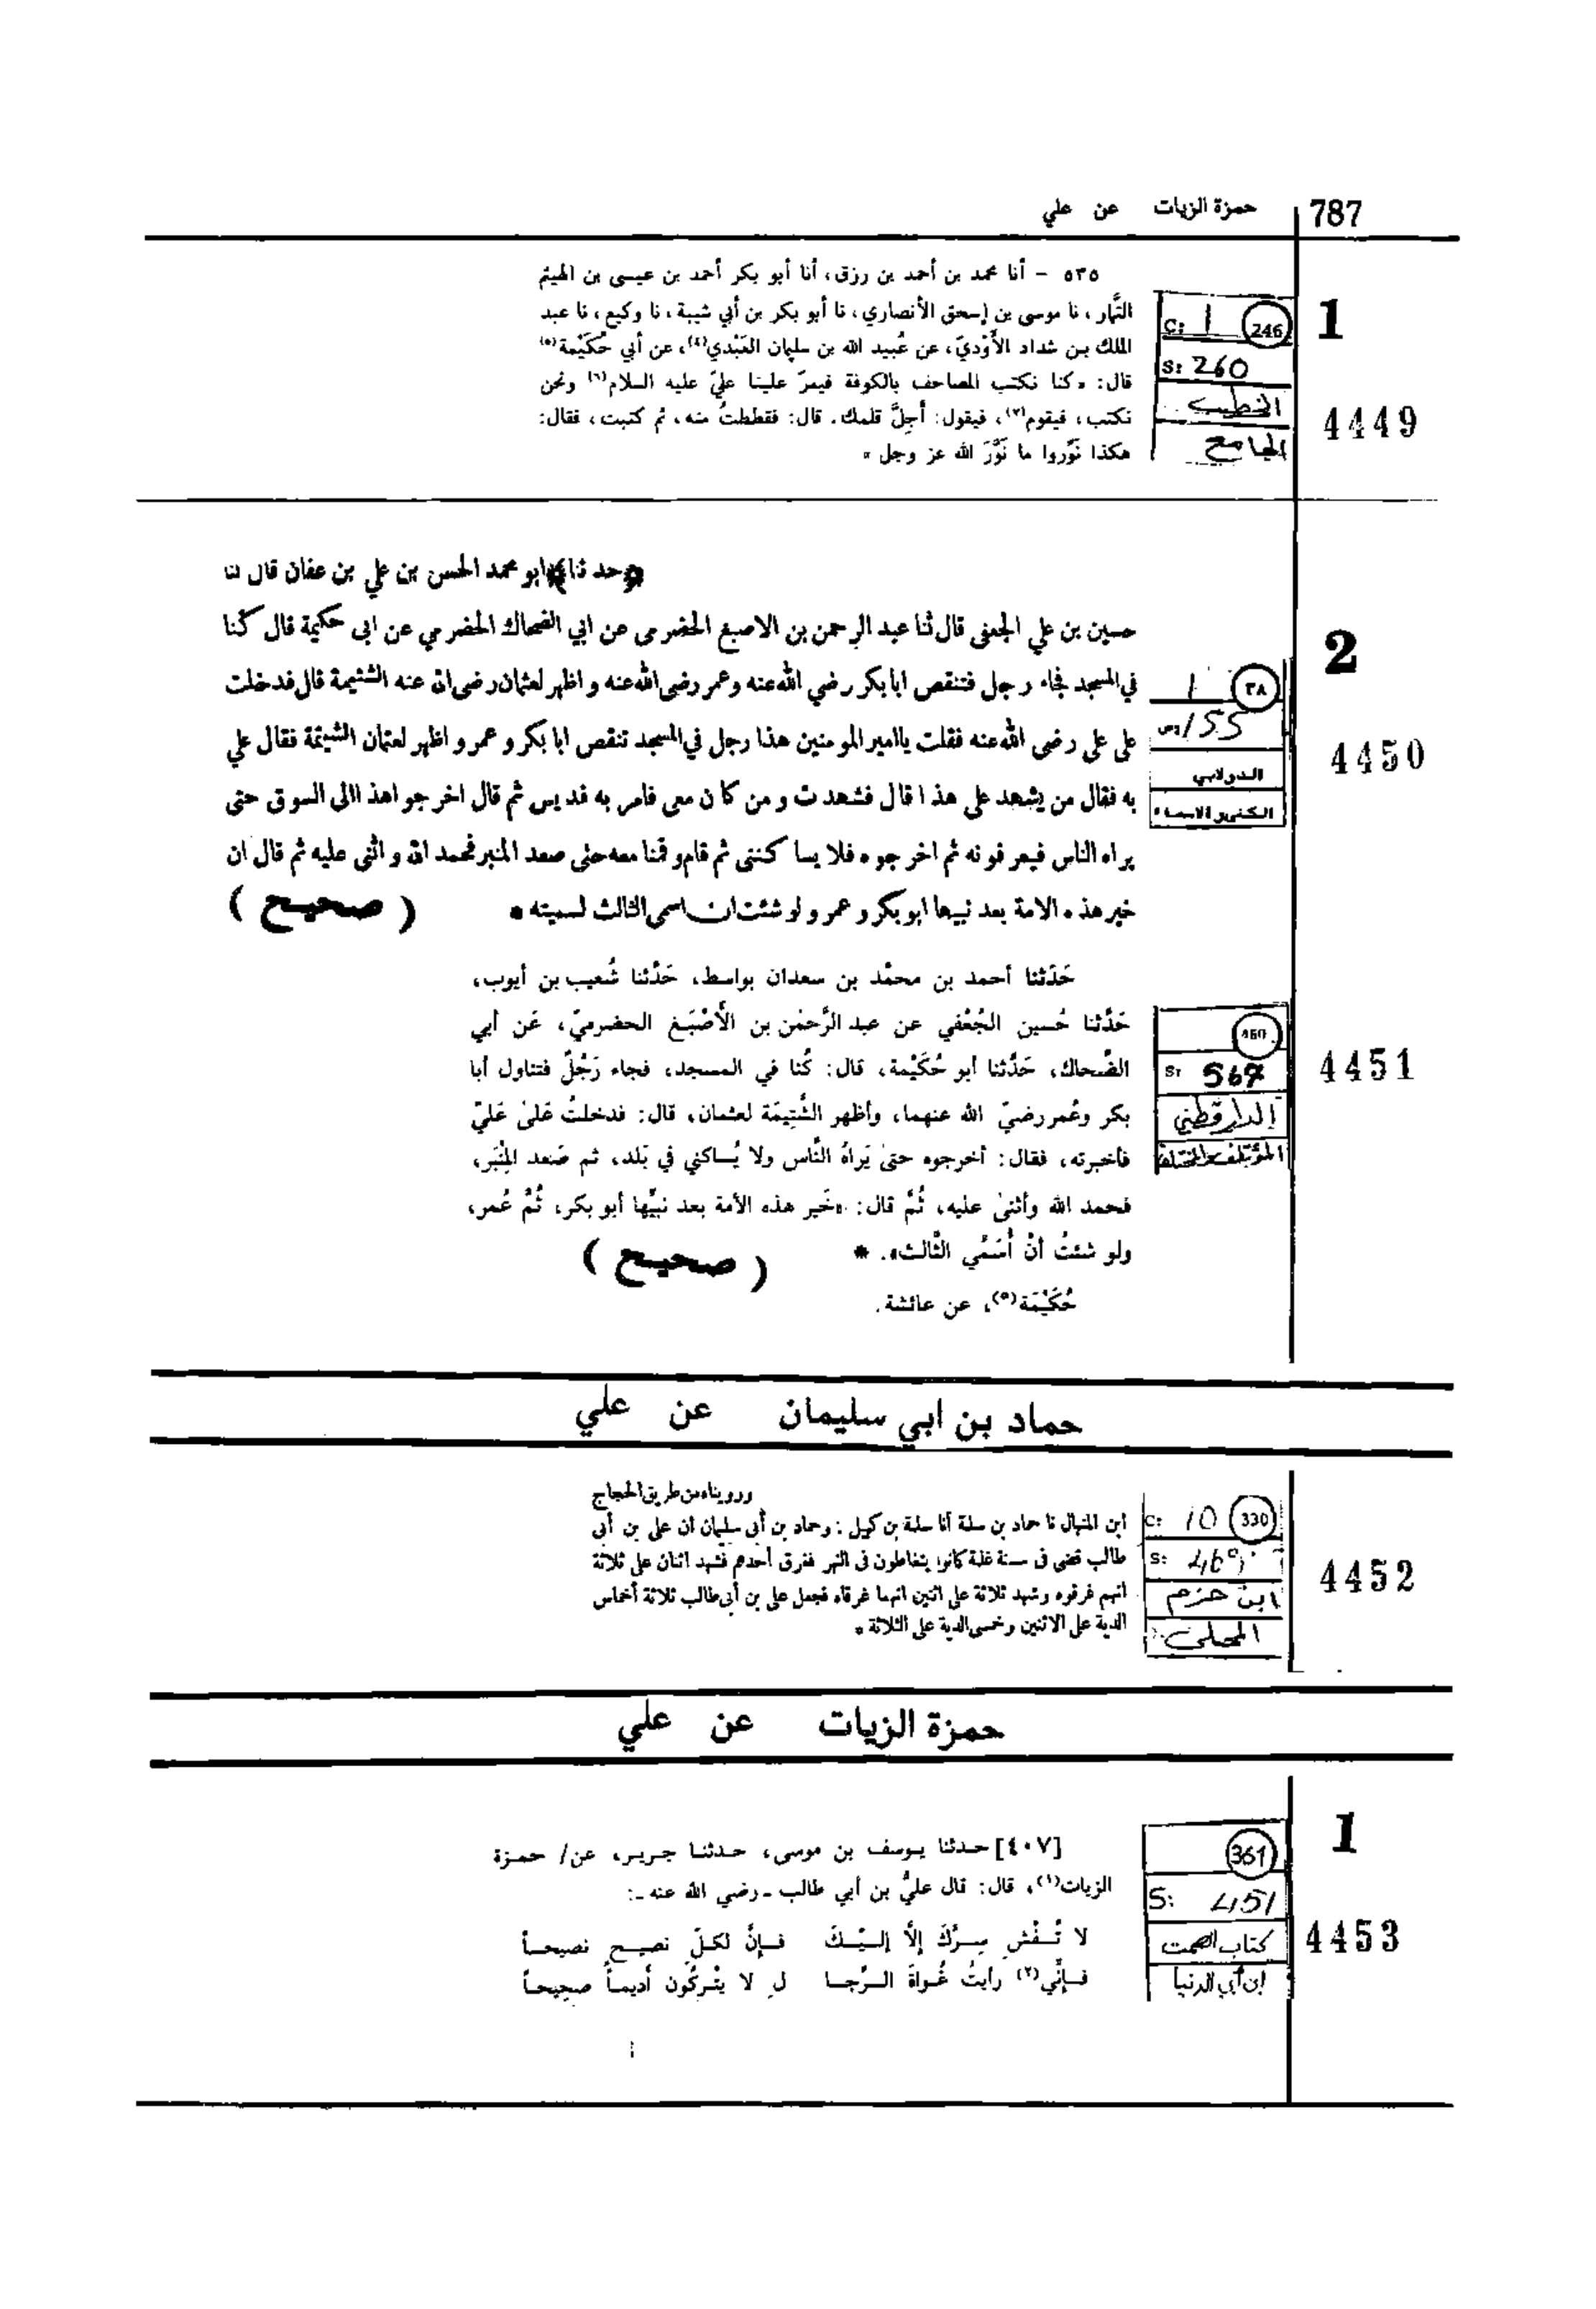 787
حمزة الزيات عن علي
1
4449
C: 1 246
S: 260
الخطيب
الجامع
٥٣٥ - أنا محمد بن أحمد بن رزق، أنا أبو بكر أحمد بن عيسى بن الهيثم
التَّمار، نا موسى بن إسحق الأنصاري، نا أبو بكر بن أبي شيبة، نا وكيع، نا عبد
الملك بن شداد الأَوْديّ، عن عُبيد الله بن سليمان العَبْدي(٤)، عن أبي حُكَيْمة(٥)
قال: «كنا نكتب المصاحف بالكوفة فيمرّ علينا عليّ عليه السلام(٦) ونحن
نكتب، فيقوم(٧)، فيقول: أجِلَّ قلمك. قال: فقططتُ منه، ثم كتبت، فقال:
هكذا نَوِّروا ما نَوَّرَ الله عز وجل»
2
4450
1 ٣٨
ص 155
الدولابي
الكنى والاسماء
﴿حدثنا﴾ ابو محمد الحسن بن علي بن عفان قال ثنا
حسين بن علي الجعفى قال ثنا عبد الرحمن بن الاصبغ الحضرمى عن ابي الضحاك الحضرمي عن ابى حكيمة قال كنا
في المسجد فجاء رجل فتنقص ابا بكر رضي الله عنه وعمر رضى الله عنه و اظهر لعثمان رضى الله عنه الشتيمة قال فدخلت
على على رضى الله عنه فقلت يا امير المومنين هذا رجل في المسجد تنقص ابا بكر و عمر و اظهر لعثمان الشتيمة فقال علي
به فقال من يشهد على هذا قال فشهدت و من كان معى فامر به فديس ثم قال اخرجوا هذا الى السوق حتى
يراه الناس فيعرفونه ثم اخرجوه فلا يساكننى ثم قام وقمنا معه حتى صعد المنبر فحمد الله و اثنى عليه ثم قال ان
خير هذه الامة بعد نبيها ابو بكر و عمر و لو شئت ان اسمى الثالث لسميته *
( صحيح )
4451
460
S: 567
الدارقطني
المؤتلف والمختلف
حَدَّثنا أحمد بن محمَّد بن سعدان بواسط، حَدَّثنا شُعيب بن أيوب،
حَدَّثنا حُسين الجُعْفي عن عبد الرَّحمٰن بن الأَصْبَغ الحضرميّ، عَن أبي
الضَّحاك، حَدَّثنا أبو حُكَيْمة، قال: كُنا في المسجد، فجاء رَجُلٌ فتناول أبا
بكر وعُمر رضيَ الله عنهما، وأظهر الشَّتِيمَة لعثمان، قال: فدخلتُ عَلىٰ عَليّ
فأخبرته، فقال: أخرجوه حتىٰ يَراهُ النَّاس ولا يُساكني في بَلد، ثم صَعد المِنْبَر،
فحمد الله وأثنىٰ عليه، ثُمَّ قال: «خَير هذه الأمة بعد نبيِّها أبو بكر، ثُمَّ عُمر،
ولو شئتُ أنْ أُسَمِّي الثَّالث». *
( صحيح )
حُكَيْمَة(٥)، عن عائشة.
حماد بن ابي سليمان عن علي
4452
C: 10 330
S: 469
ابن حزم
المحلى
ورويناه من طريق الحجاج
ابن المنهال نا حماد بن سلمة أنا سلمة بن كهيل: وحماد بن أبى سليمان ان على بن أبى
طالب قضى فى ستة غلمة كانوا يتغاطون فى النهر فغرق أحدهم فشهد اثنان على ثلاثة
انهم غرقوه وشهد ثلاثة على اثنين انهما غرقاه فجعل على بن أبى طالب ثلاثة أخماس
الدية على الاثنين وخمسى الدية على الثلاثة *
حمزة الزيات عن علي
1
4453
361
S: 451
كتاب الصمت
ابن أبي الدنيا
[٤٠٧] حدثنا يوسف بن موسى، حدثنا جرير، عن/ حمزة
الزيات(١)، قال: قال عليُّ بن أبي طالب ـ رضي الله عنه ـ:
لا تُفْشِ سِرَّكَ إلَّا إليْكَ فإنَّ لكلِّ نصيح نصيحاً
فإنِّي(٢) رأيتُ غُواةَ الرِّجا لِ لا يتْركُون أديماً صحِيحاً